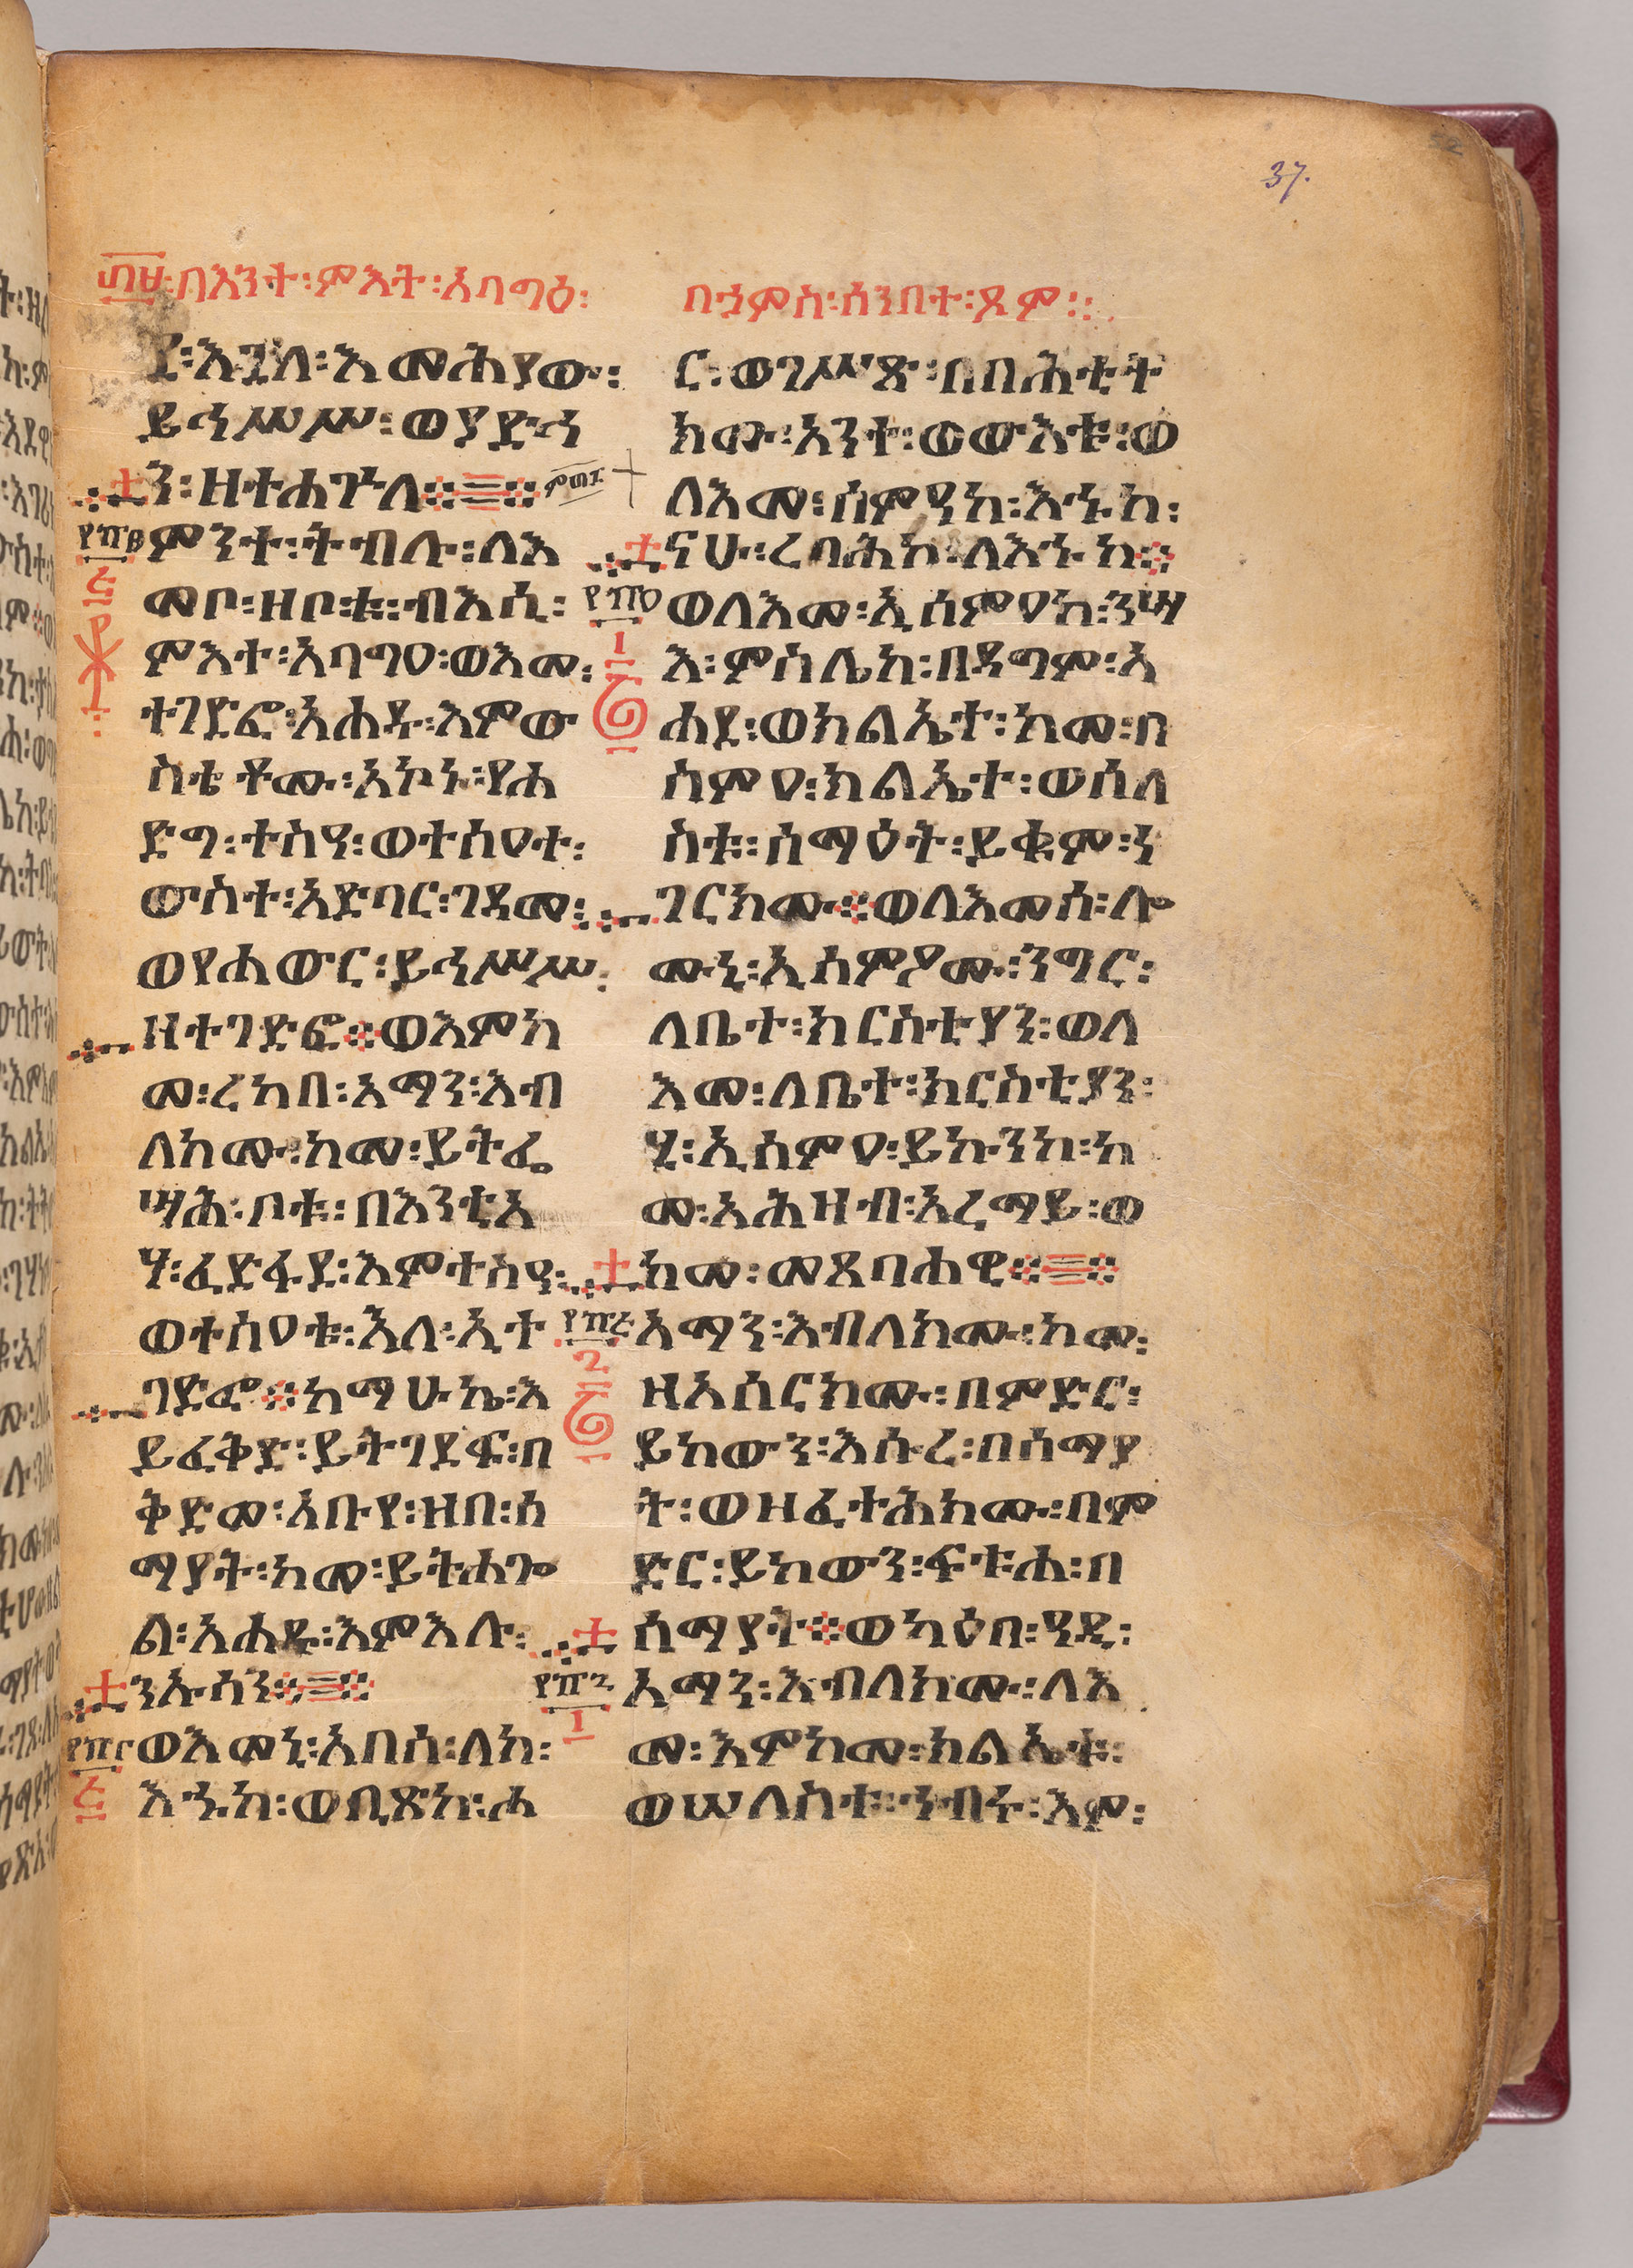 በእንተ፡ምእት፡አባግዕ፡
በኃምስ፡ሰንበተ፡ጾም፡፡
እጓለ፡እመሕያው፡
ይኅሥሥ፡ወያድኅ
ን፡ዘተሐጕለ፨
ምንተ፡ትብሉ፡ለእ
መቦ፡ዘቦቱ፡ብእሲ፡
ምእተ፡አባግዐ፡ወእመ፡
ተገድፎ፡አሐዱ፡እምው
ስቴቶሙ፡አኮኑ፡የሐ
ድግ፡ተስዓ፡ወተስዐተ፡
ውስተ፡አድባር፡ገዳመ፡
ወየሐውር፡ይኅሥሥ፡
ዘተገድፎ፨ወእምከ
መ፡ረከበ፡አማን፡እብ
ለክሙ፡ከመ፡ይትፌ
ሣሕ፡ቦቱ፡በእንቲአ
ሃ፡ፈድፋደ፡እምተስዓ፡
ወተስዐቱ፡እለ፡ኢተ
ገድፎ፨ከማሁኬ፡ኢ
ይፈቅድ፡ይትገደፍ፡በ
ቅድመ፡አቡየ፡ዘበ፡ሰ
ማያት፡ከመ፡ይትሐጐ
ል፡አሐዱ፡እምእሉ፡
ንኡሳን፨
ወእመኒ፡አበሰ፡ለከ፡
እኁከ፡ወቢጽከ፡ሐ
ር፡ወገሥጾ፡በበሕቲት
ክሙ፡አንተ፡ወውእቱ፡ወ
ለእመ፡ሰምዓከ፡እኁከ፡
ናሁ፡ረባሕከ፡ለእኁከ፨
ወለእመ፡ኢሰምዐከ፡ንሣ
እ፡ምስሌከ፡በዳግም፡አ
ሐደ፡ወክልኤተ፡ከመ፡በ
ስምዐ፡ክልኤተ፡ወሰለ
ስቱ፡ሰማዕት፡ይቁም፡ነ
ገርክሙ፨ወለእመሰ፡ሎ
ሙኒ፡ኢሰምዖሙ፡ንግር፡
ለቤተ፡ክርስቲያን፡ወለ
እመ፡ለቤተ፡ክርስቲያን፡
ሂ፡ኢሰምዐ፡ይኩንከ፡ከ
መ፡አሕዛብ፡አረማይ፡ወ
ከመ፡መጸባሐዊ፨
አማን፡እብለክሙ፡ከመ፡
ዘአሰርክሙ፡በምድር፡
ይከውን፡እሱረ፡በሰማያ
ት፡ወዘፈተሕክሙ፡በም
ድር፡ይከውን፡ፍቱሐ፡በ
ሰማያት፨ወካዕበ፡ዓዲ፡
አማን፡እብለክሙ፡ለእ
መ፡እምከመ፡ክልኤቱ፡
ወሠለስቱ፡ኀብሩ፡እም፡
37.